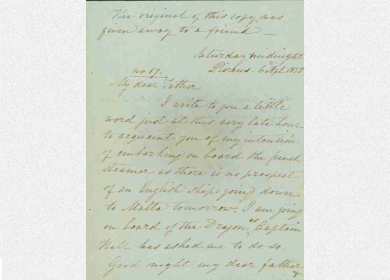 The original of this copy was
given away to a friend
Saturday midnight
Piraeus. 6 Apl. 1838
No 59.
My dear Father
I write to you a little
word just at this very late hour
to acquaint you of my intention
of embarking on board the french
steamer as there is no prospect
of an English ship going down
to Malta tomorrow. I am going
on board of the Dragon, as Captain
Hall has asked me to do so.
Good night my dear father